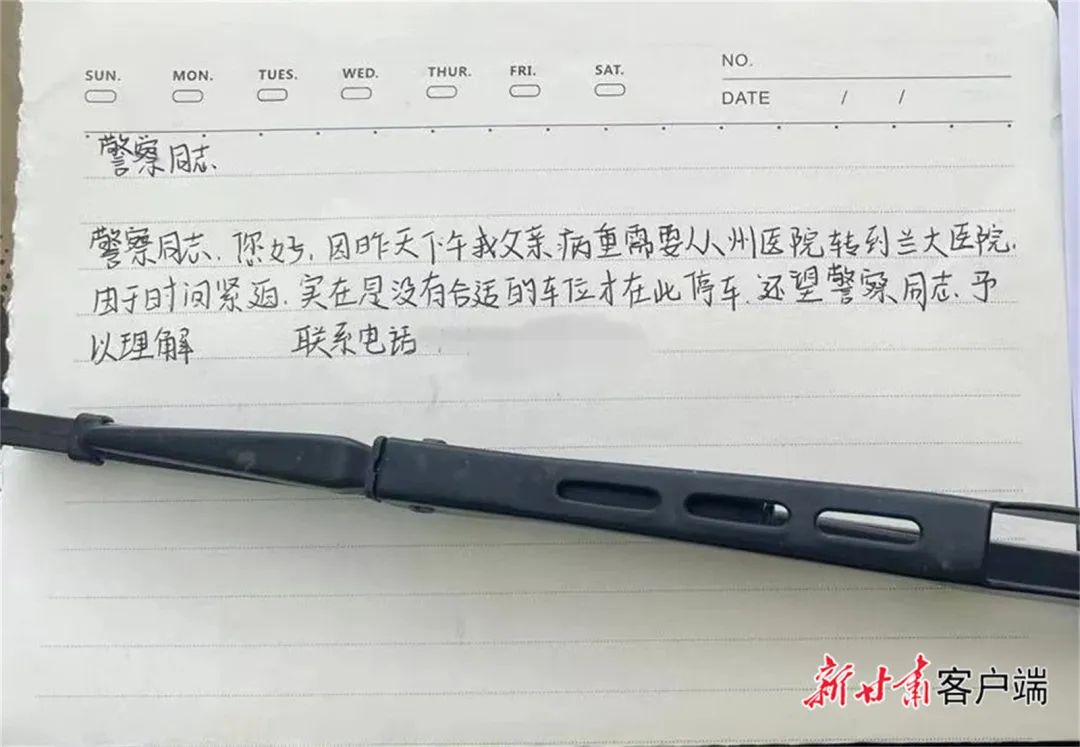 SUN. MON. TUES. WED. THUR. FRI. SAT.
NO.
DATE / /
警察同志.
警察同志.您好,因昨天下午我父亲病重需要从州医院转到兰大医院.
由于时间紧迫.实在是没有合适的车位才在此停车.还望警察同志.予
以理解 联系电话
新甘肃客户端